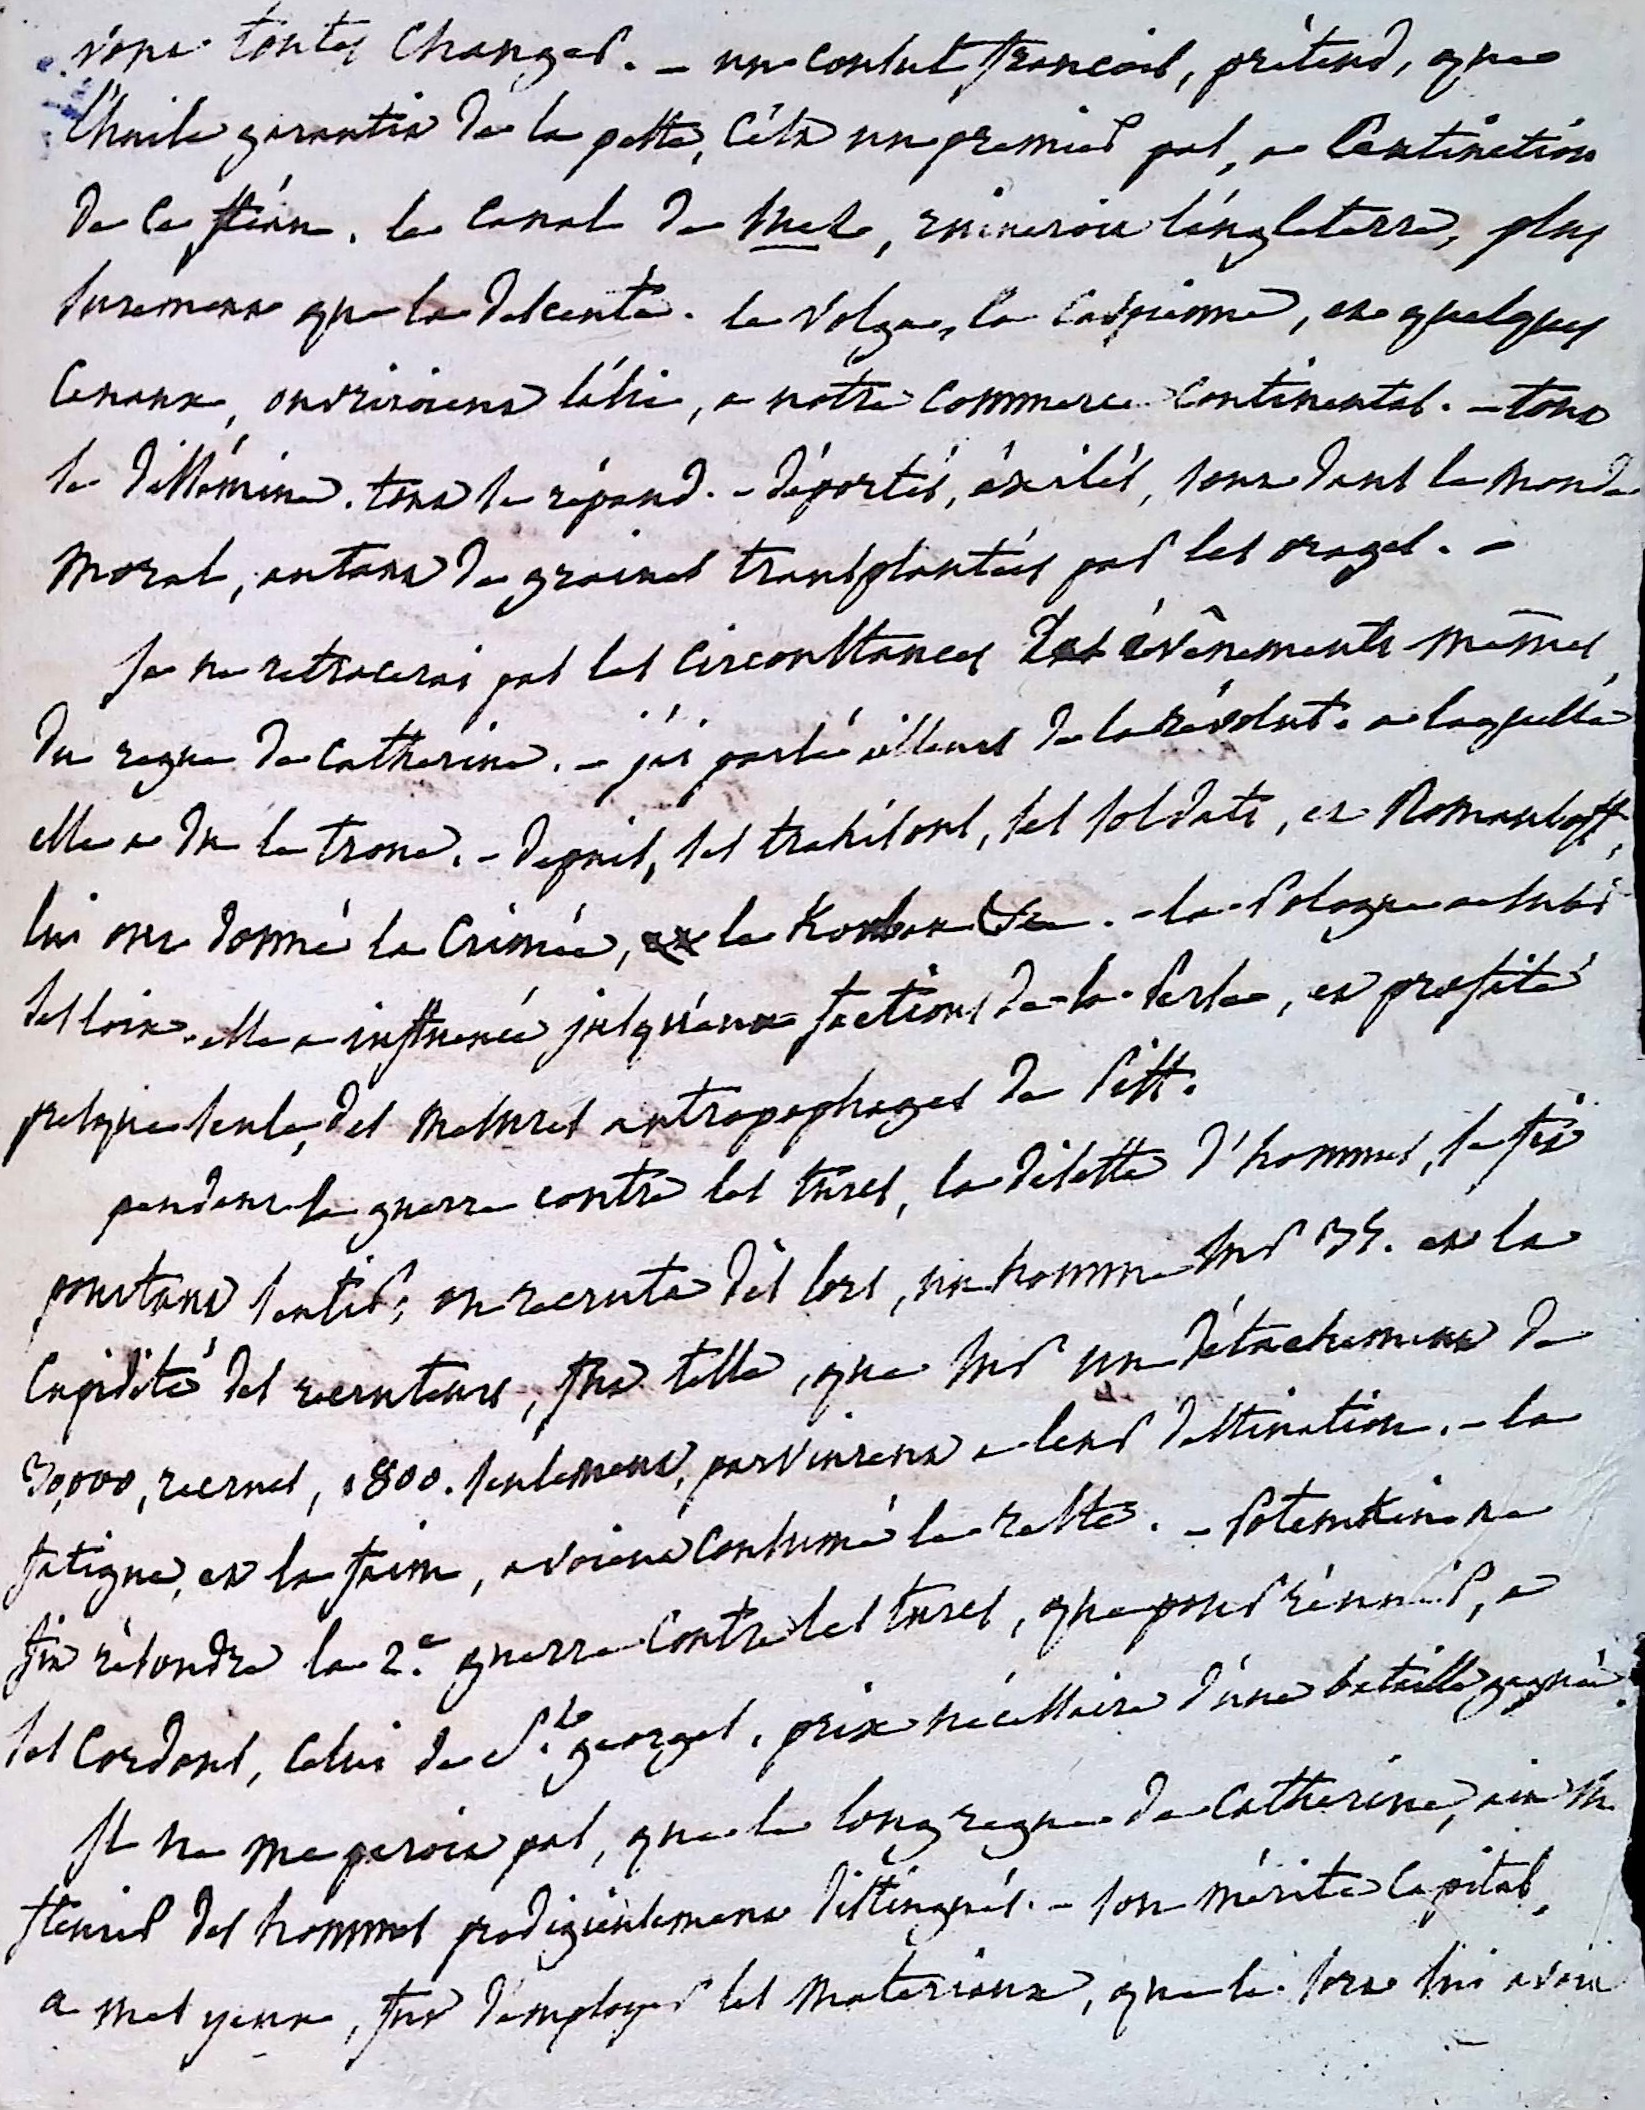 vont toutes changer. – un consul francais, prétend, que
l'huile garantit de la peste, c'est un premier pas, a l'extinction
de ce fléau. le canal de Suez, ruineroit l'angleterre, plus
surement que la descente. le Volga, la caspienne, et quelques
canaux, ouvriroient l'asie, a notre commerce continental. – tout
se dissémine. tout se répand. – déportés, éxilés, sont dans le monde
moral, autant de graines transplantées par les orages. –
Je ne retracerai pas les circonstances des évênements mêmes,
du regne de catherine. – j'ai parlé ailleurs de la révolut. a laquelle
elle a du le trone. – depuis, ses trahisons, ses soldats, et Romanloff,
lui ont donné la Crimée, le Kouban &c. – la Pologne a subi
ses loix. elle a influencé jusqu'aux factions de la Perse, et profité
presque seule, des mesures antropophages de Pitt.
pendant la guerre contre les turcs, la disette d'hommes, se fit
pourtant sentir; on recruta dès lors, un homme sur 35. et la
cupidité des recruteurs, fut telle, que sur un détachement de
30,000, recrues, 1800. seulement, parvinrent a leur destination. – la
fatigue, et la faim, avoient consumé le reste. – Potemkin ne
fit résoudre la 2.e guerre contre les turcs, que pour réunir, a
ses cordons, celui de St. georges. prix nécessaire d'une bataille gagnée.
Il ne me paroit pas, que le long regne de Catherine, ait vu
fleurir des hommes prodigieusement distingués. – son mérite capital,
a mes yeux, fut d'employer les materiaux, que le sort lui avoit